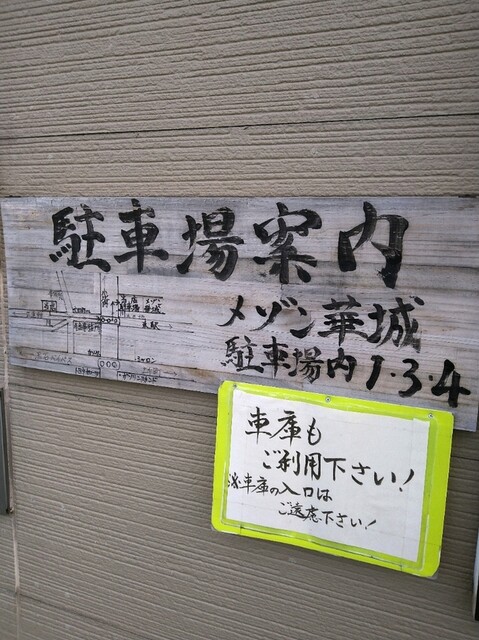 駐車場案内
メゾン華城
駐車場内1・3・4
車庫も
ご利用下さい!
※車庫の入口は
ご遠慮下さい!